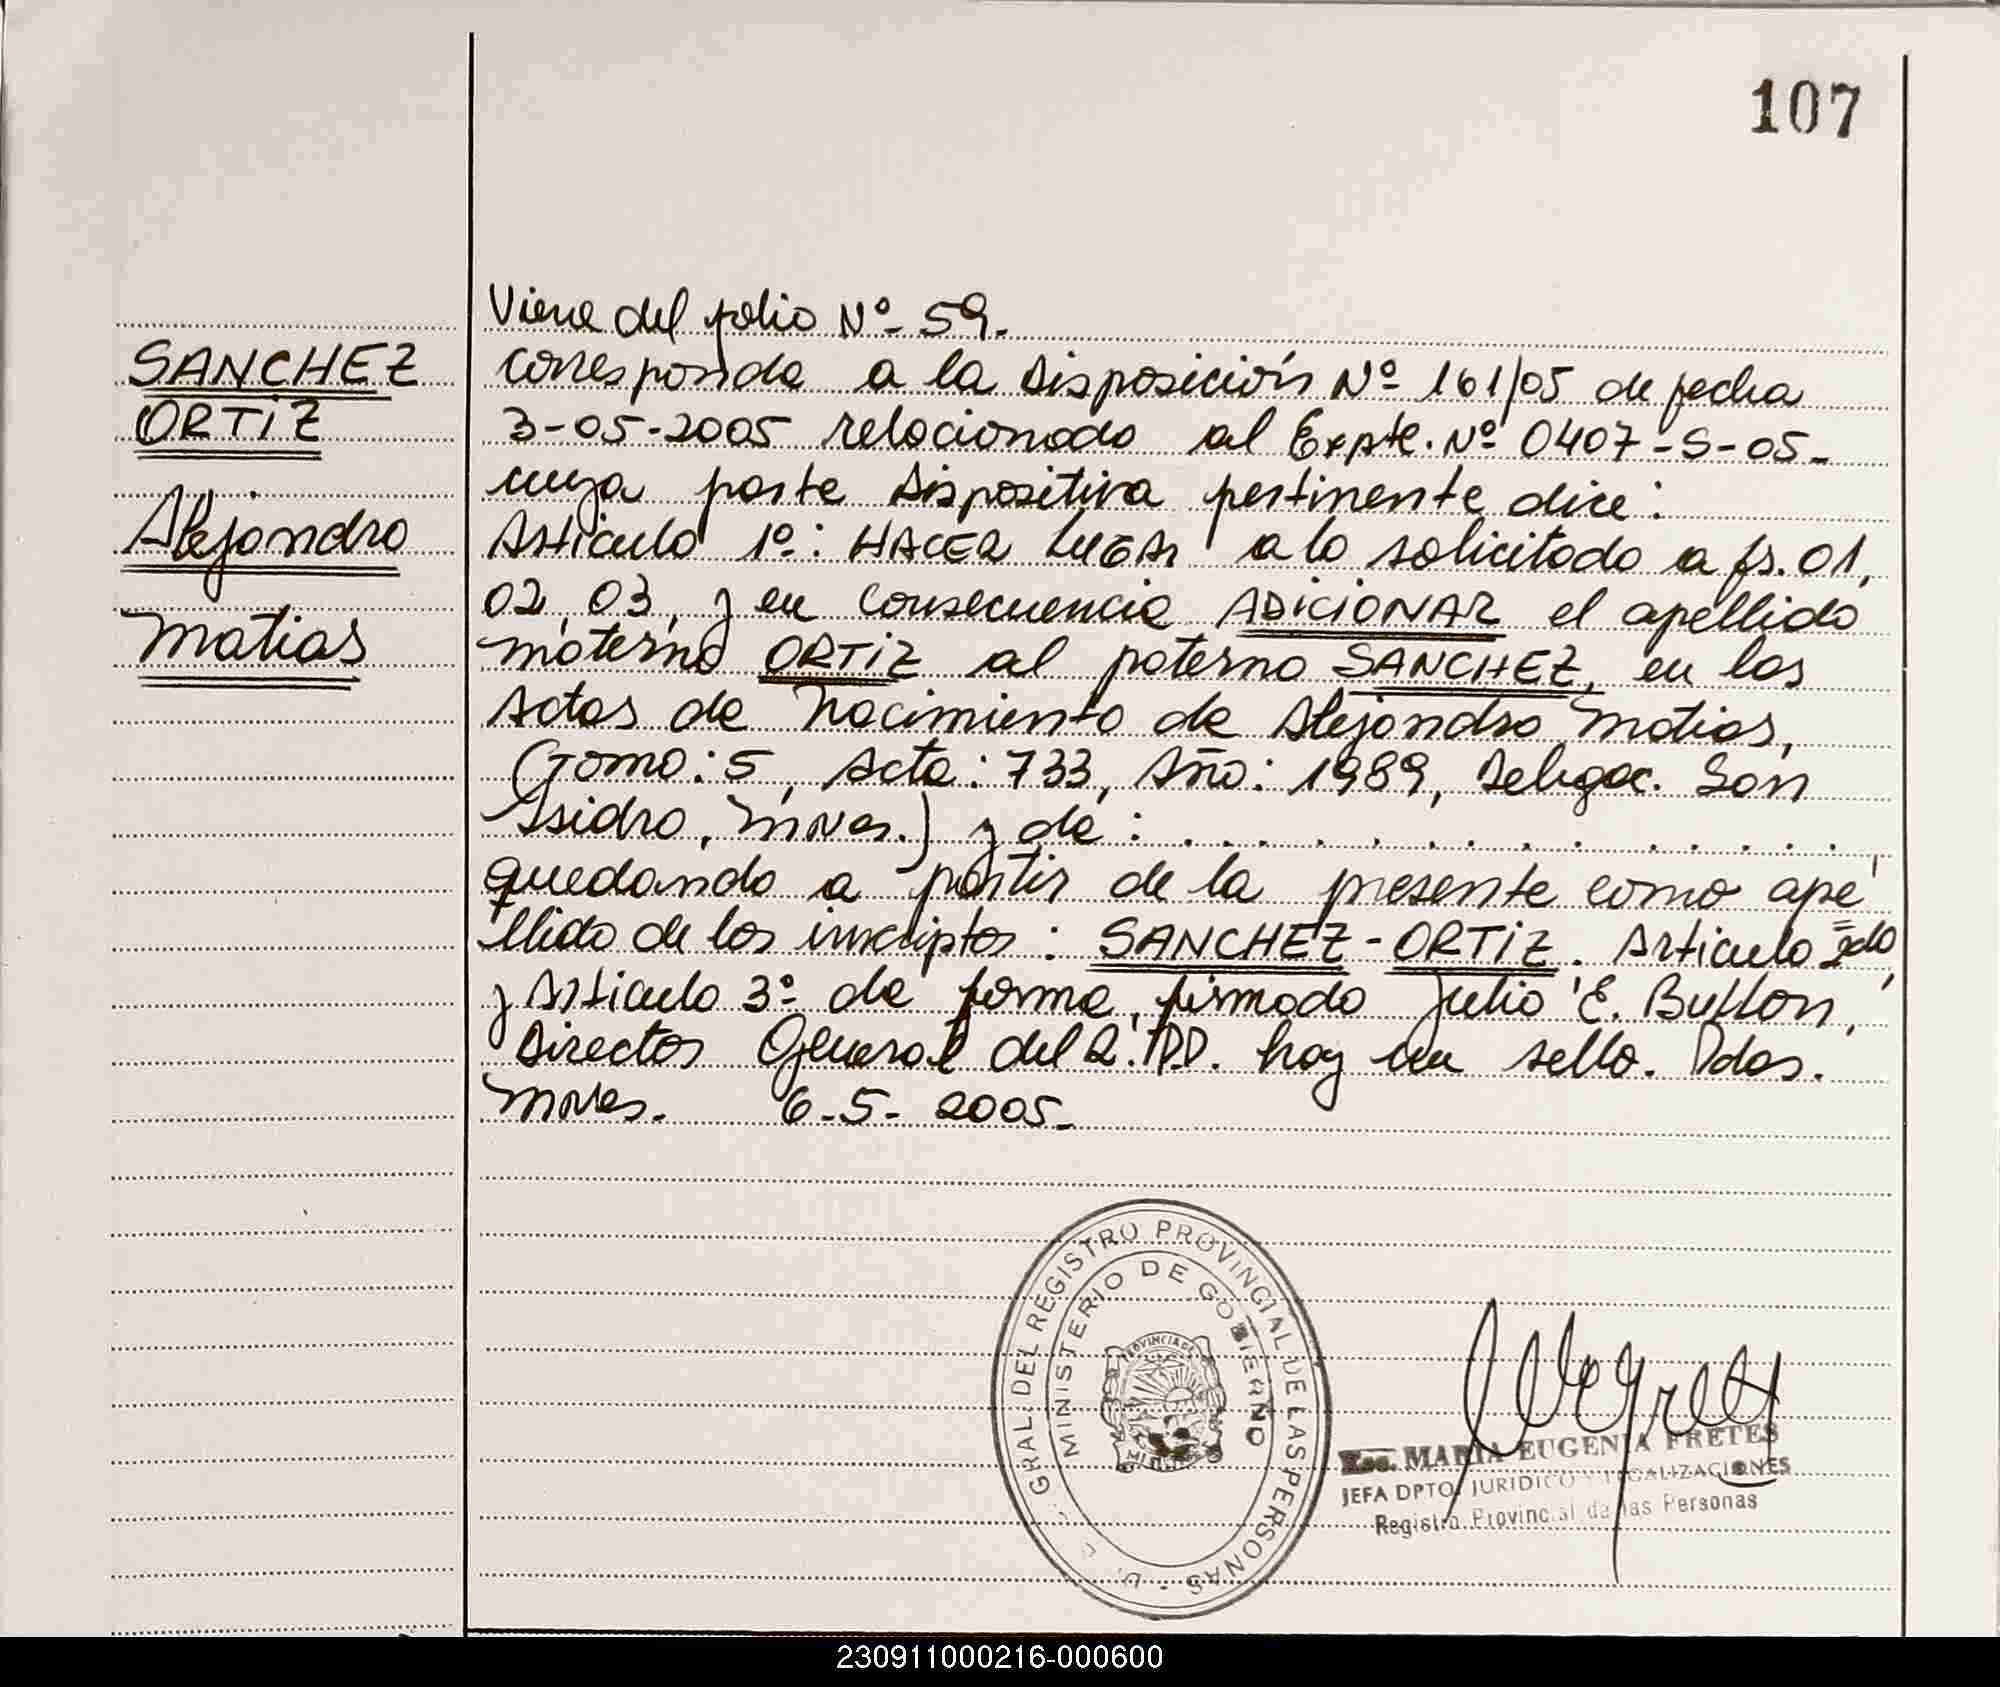 107
Viene del folio Nº- 59.-
SANCHEZ
ORTIZ
Alejandro
Matias
corresponde a la Disposición Nº 161/05 de fecha
3-05-2005 relacionado al Expte. Nº 0407-S-05-
cuya parte Dispositiva pertinente dice:
Articulo 1º: HACER LUGAR a lo solicitado a fs. 01,
02, 03, y en consecuencia ADICIONAR el apellido
materno ORTIZ al paterno SANCHEZ, en las
Actas de Nacimiento de Alejandro Matias,
(Tomo: 5, Acta: 733, Año: 1989, Delegac. San
Isidro, Mnes.) y de: . . . . . . . . . . . . .
quedando a partir de la presente como ape
llido de los inscriptos: SANCHEZ-ORTIZ. Articulo 2do,
y Articulo 3º de forma, firmado Julio E. Button,
Director General del R.P.P. hay un sello. Pdas.
Mnes. 6-5-2005.-
GRAL. DEL REGISTRO PROVINCIAL DE LAS PERSONAS
MINISTERIO DE GOBIERNO
PROVINCIA DE
MARIA EUGENIA FRETES
JEFA DPTO. JURIDICO Y LEGALIZACIONES
Registro Provincial de las Personas
230911000216-000600